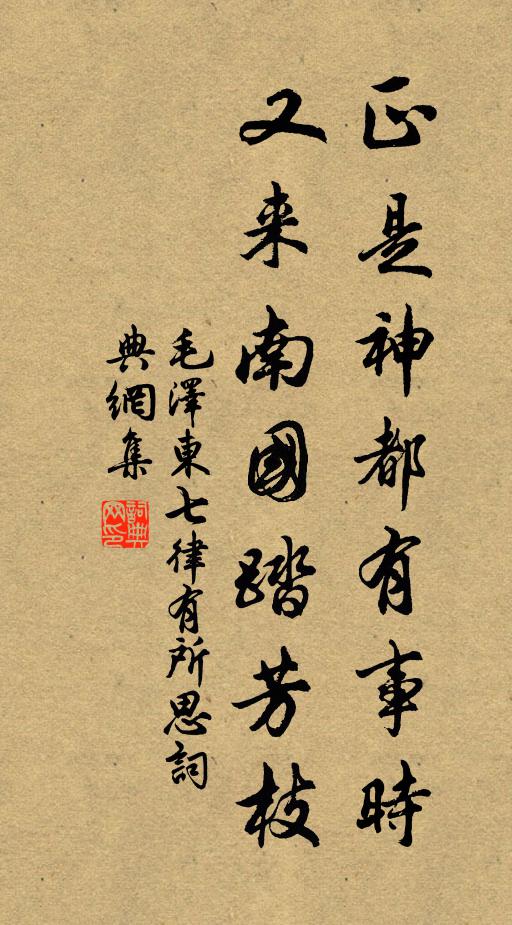 正是神都有事時
又来南國踏芳枝
毛澤東七律有所思詞
典網集
詞典
网印